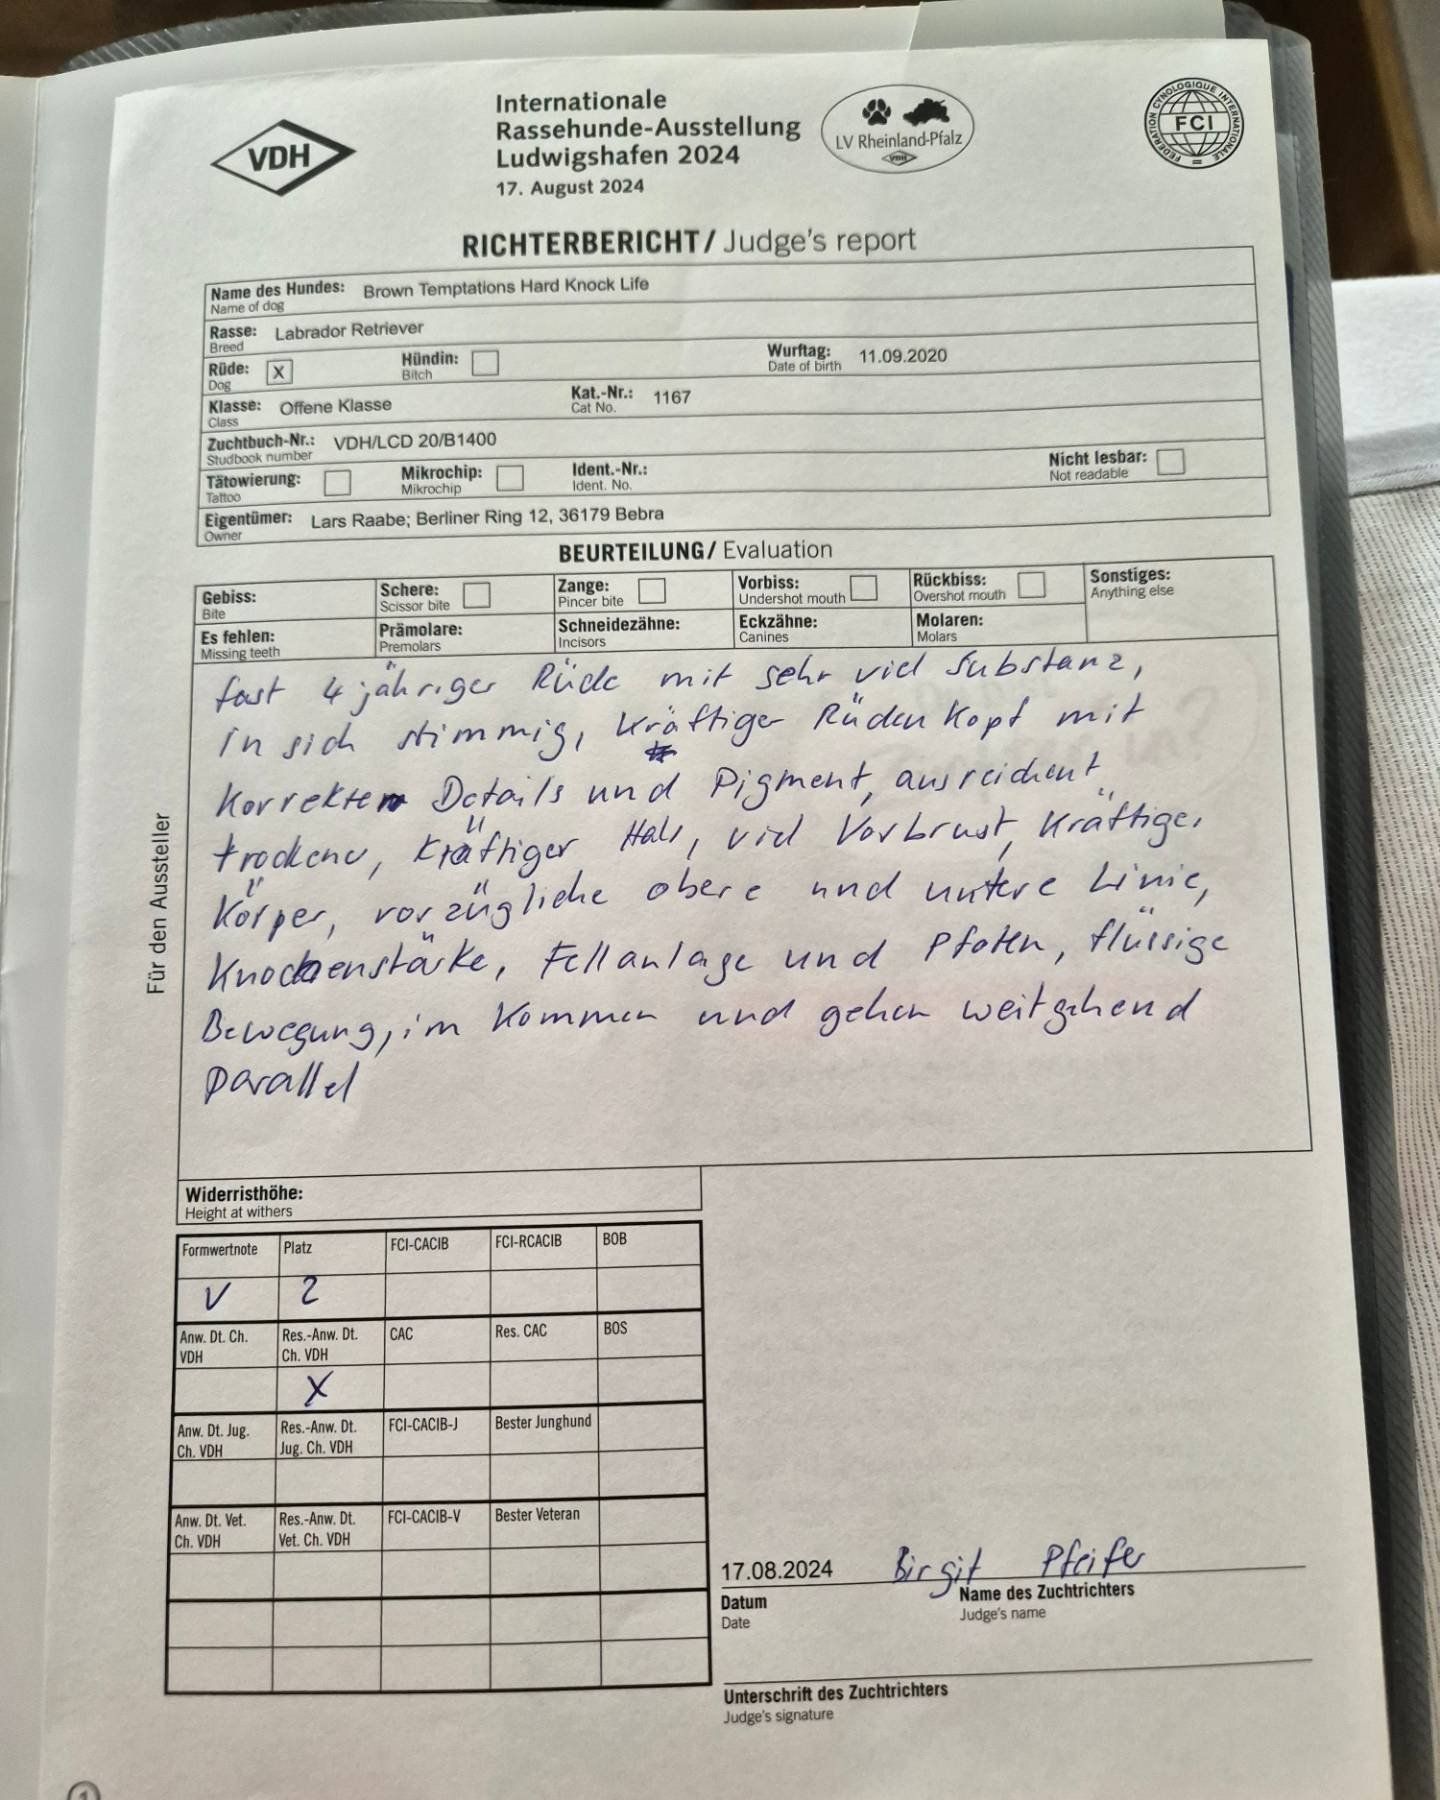 VDH
Internationale
Rassehunde-Ausstellung
Ludwigshafen 2024
17. August 2024
LV Rheinland-Pfalz
VDH
FEDERATION CYNOLOGIQUE INTERNATIONALE
FCI
RICHTERBERICHT/ Judge's report
Name des Hundes: Brown Temptations Hard Knock Life
Name of dog
Rasse: Labrador Retriever
Breed
Rüde: X Hündin: Wurftag: 11.09.2020
Dog Bitch Date of birth
Klasse: Offene Klasse Kat.-Nr.: 1167
Class Cat No.
Zuchtbuch-Nr.: VDH/LCD 20/B1400
Studbook number
Tätowierung: Mikrochip: Ident.-Nr.: Nicht lesbar:
Tattoo Mikrochip Ident. No. Not readable
Eigentümer: Lars Raabe; Berliner Ring 12, 36179 Bebra
Owner
BEURTEILUNG/ Evaluation
Gebiss: Schere: Zange: Vorbiss: Rückbiss: Sonstiges:
Bite Scissor bite Pincer bite Undershot mouth Overshot mouth Anything else
Es fehlen: Prämolare: Schneidezähne: Eckzähne: Molaren:
Missing teeth Premolars Incisors Canines Molars
Für den Aussteller
fast 4 jähriger Rüde mit sehr viel Substanz,
in sich stimmig, kräftiger Rüdenkopf mit
korrekten Details und Pigment, ausreichent
trockener, kräftiger Hals, viel Vorbrust, kräftiger
Körper, vorzügliche obere und untere Linie,
Knochenstärke, Fellanlage und Pfoten, flüssige
Bewegung, im Kommen und gehen weitgehend
parallel
Widerristhöhe:
Height at withers
Formwertnote Platz FCI-CACIB FCI-RCACIB BOB
V 2
Anw. Dt. Ch. Res.-Anw. Dt. CAC Res. CAC BOS
VDH Ch. VDH
X
Anw. Dt. Jug. Res.-Anw. Dt. FCI-CACIB-J Bester Junghund
Ch. VDH Jug. Ch. VDH
Anw. Dt. Vet. Res.-Anw. Dt. FCI-CACIB-V Bester Veteran
Ch. VDH Vet. Ch. VDH
17.08.2024 Birgit Pfeifer
Datum Name des Zuchtrichters
Date Judge's name
Unterschrift des Zuchtrichters
Judge's signature
1